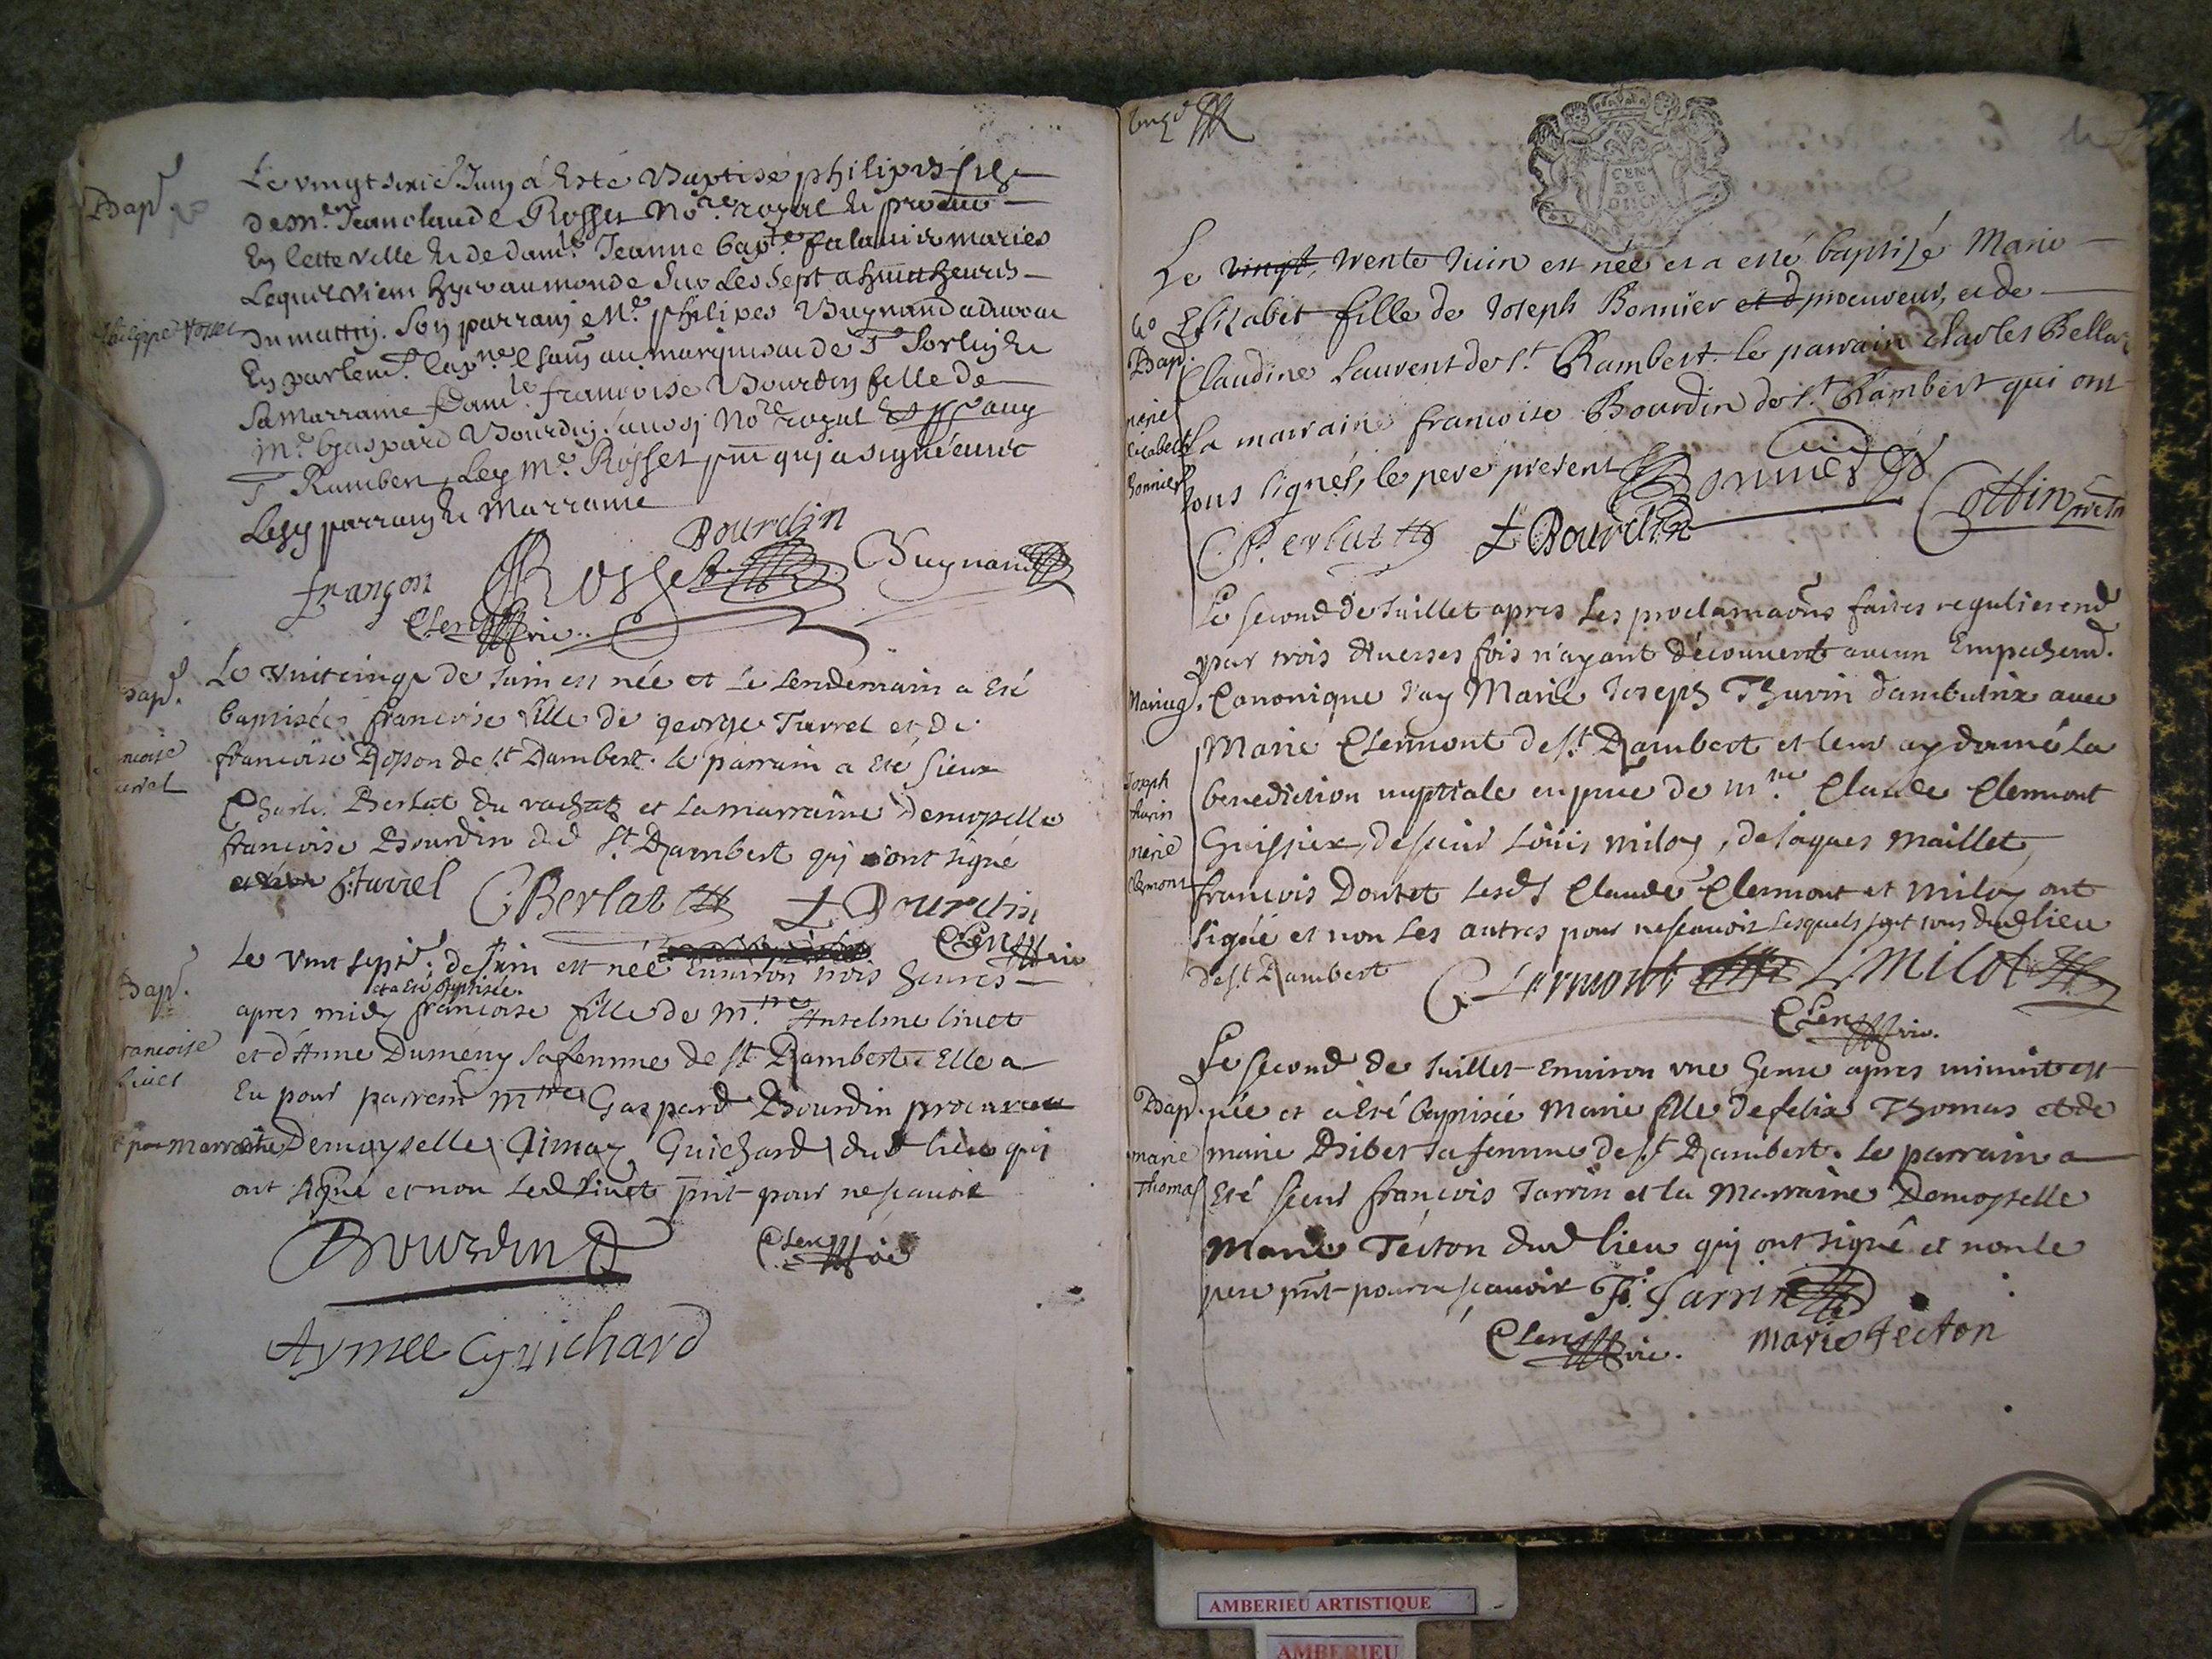 Bap.
Le vingt sixie Juin a Este Baptisé philipes fils
de Mre Jean claude Rosset No.re royal et procur
En Cette ville Et de dam.le Jeanne bap.te maries
Lequel vient hyer au monde sur Les sept a huit heures
philippe rosset
du mattin. Son parrain e Mre philipes Bugnand advocat
En parlem.t Cap.ne Chastelain au marquisat de St Sorlin Et
Sa marraine dam.le françoise Bourdin fille de
Mre Gaspard Bourdin aussi No.re royal
St Rambert, Led Mre Rosset pnt qui a signé avec
Lesd parrain Et Marraine
Bourdin
françon Rosset Bugnand
Clerc vic.
Bap.
Le vint cinq de Juin est née et Le Lendemain a Eté
baptisée francoise fille de george Turrel et de
francoise de St Rambert. Le parrain a Eté Sieur
Charle Berlat du vachat et La marraine Demoyselle
francoise Bourdin dud St Rambert qui ont signé
Turrel C. Berlat f Bourdin
Clerc vic
Bap.
Le Vint sept de Juin est née Environ trois heures
et a Eté baptisée
apres midy francoise fille de M.tre Anselme livet
francoise
livet
et d'Anne Dumeny sa femme de St Rambert. Elle a
Eu pour parrein Mtre Gaspard Bourdin procureur
et pour marraine Demoyselle Aimay Guichard dud lieu qui
ont signé et non Led livet pnt pour ne scavoir
Bourdin Clerc vic
Aymee Guichard
CEN
DE
Le vingt trente Juin est née et a esté baptisé Marie
Elisabet fille de Joseph Bonnier et d procureur, et de
Bap.
Claudine Laurent de St. Rambert. le parrain Charles Bella
marie
elisabeth
bonnier
La marraine francoise Bourdin de St Rambert qui ont
tous signés, le pere present Bonnier
C. Berlat f Bourdin Cottin
Le second de Juillet apres Les proclamaons faites regulierem.d
par trois diverses fois n'ayant découvert aucun Empechem.d
Mariag.
Canonique J'ay Marié Joseph Thurin d'ambutrix avec
Marie Clermont de St Rambert et leur ay donné La
Joseph
thurin
benediction nuptiale en pnce de M.tre Claude Clermont
marie
Clermont
huissier, de sieur Louis miloz, de Jaques Maillet,
francois Doutet Lesd Claude Clermont et miloz ont
signé et non Les autres pour ne scavoir Lesquels sont tous dud lieu
de St Rambert C. Clermont L. Milot
Clerc vic.
Le second de Juillet Environ une heure apres minuit est
Bap.
née et a Eté baptisée Marie fille de felix Thomas et de
marie
Thomas
marie Bibet sa femme de St Rambert. Le parrain a
Eté sieur francois Jarrin et la Marraine Demoyselle
Marie Tecton dud lieu qui ont signé et non le
pere pnt pour ne scavoir F. Jarrin
Clerc vic. marie tecton
AMBERIEU ARTISTIQUE
AMBERIEU